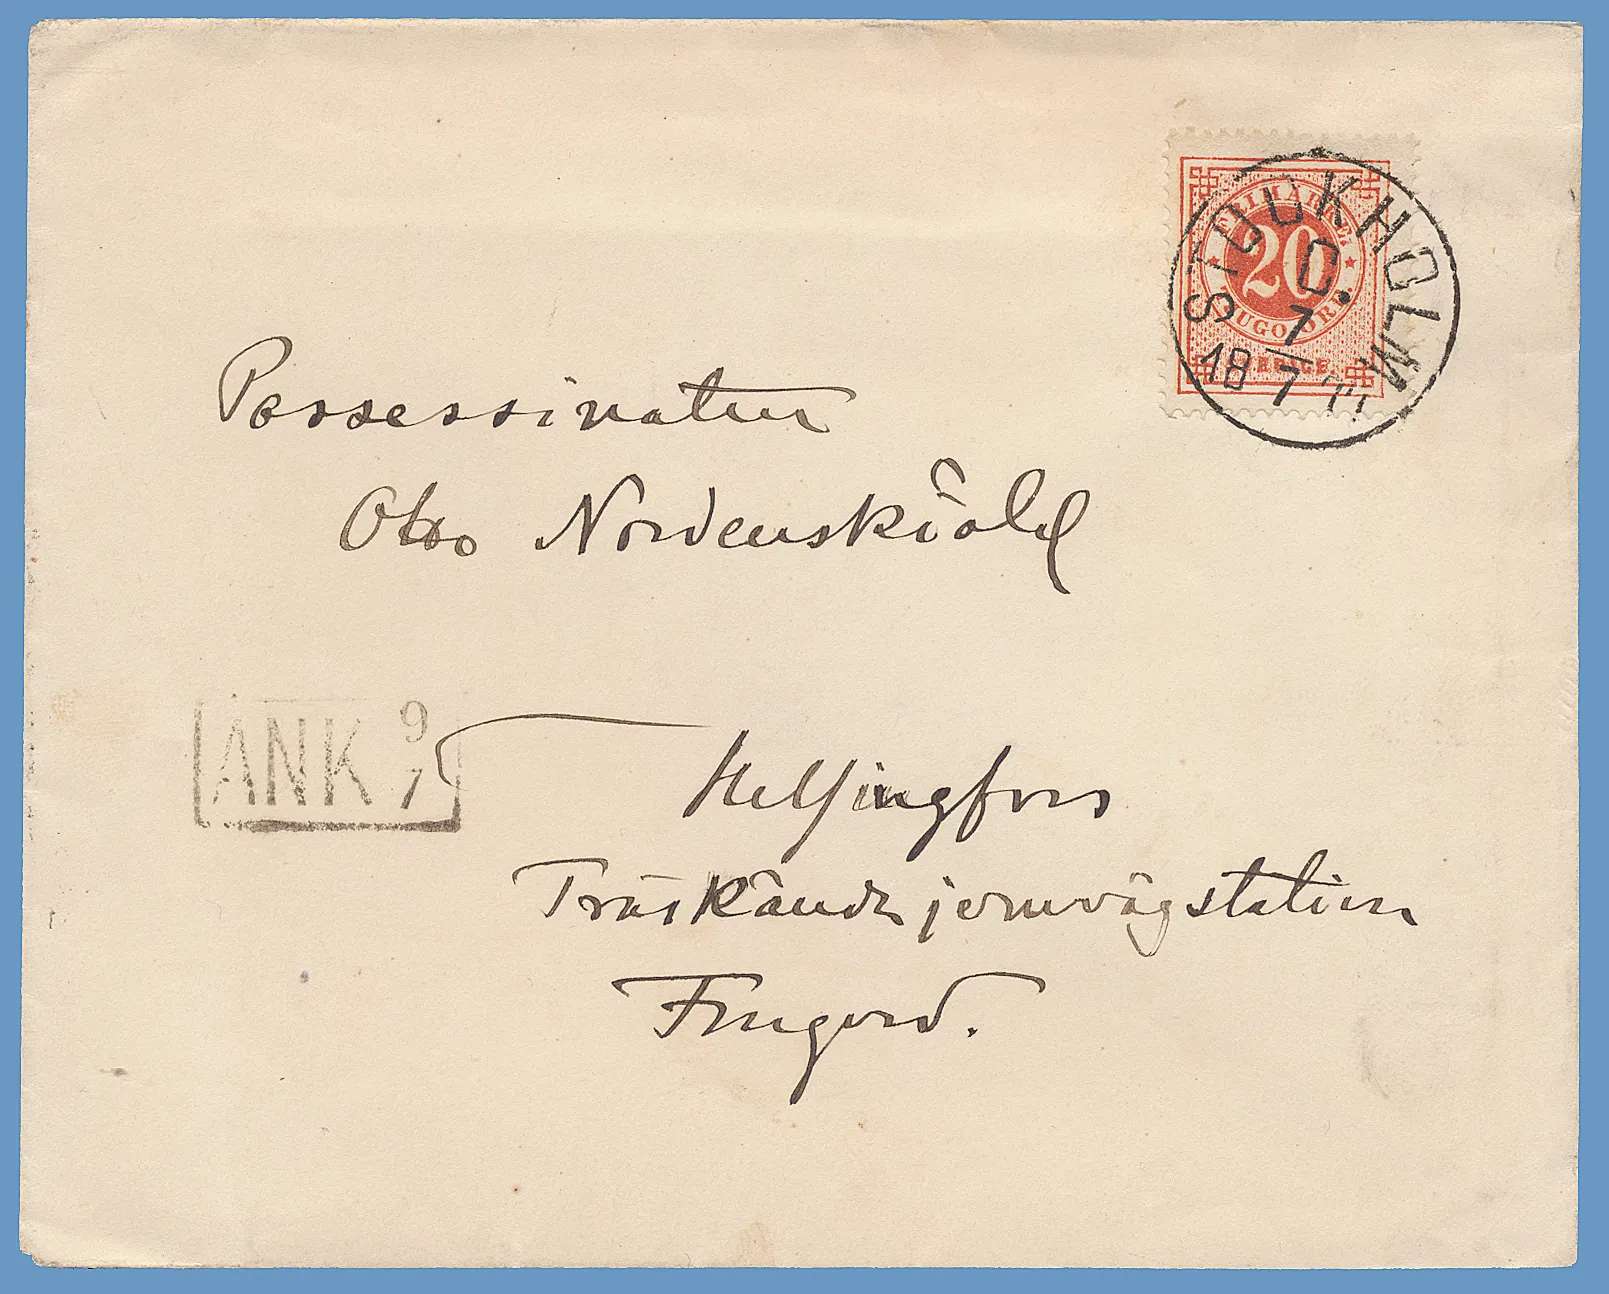 FRIMÄRKE
20
TJUGO ÖRE
SVERIGE
STOCKHOLM
C.
7
18 7
Possessinaten
Otto Nordenskiöld
ANK 9
7
Helsingfors
Träskände jernvägstation